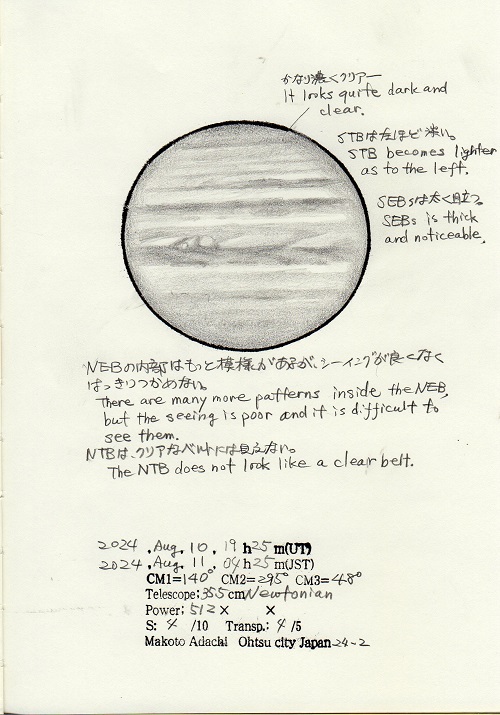 かなり濃くクリアー
It looks quite dark and
clear.
STBは左ほど淡い。
STB becomes lighter
as to the left.
SEBsは太く目立つ。
SEBs is thick
and noticeable.
NEBの内部はもっと模様があるが、シーイングが良くなく
はっきりつかめない。
There are many more patterns inside the NEB,
but the seeing is poor and it is difficult to
see them.
NTBは、クリアなベルトには見えない。
The NTB does not look like a clear belt.
2024 , Aug. 10 , 19 h 25 m(UT)
2024 , Aug. 11 , 04 h 25 m(JST)
CM1=140° CM2=295° CM3=48°
Telescope: 355 cm Newtonian
Power: 512 × ×
S: 4 /10 Transp.: 4 /5
Makoto Adachi Ohtsu city Japan 24-2